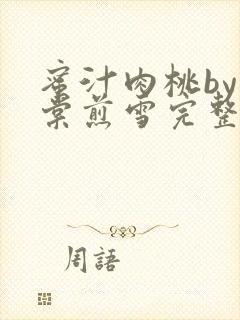 蜜汁肉桃by
棠煎雪完整
周語